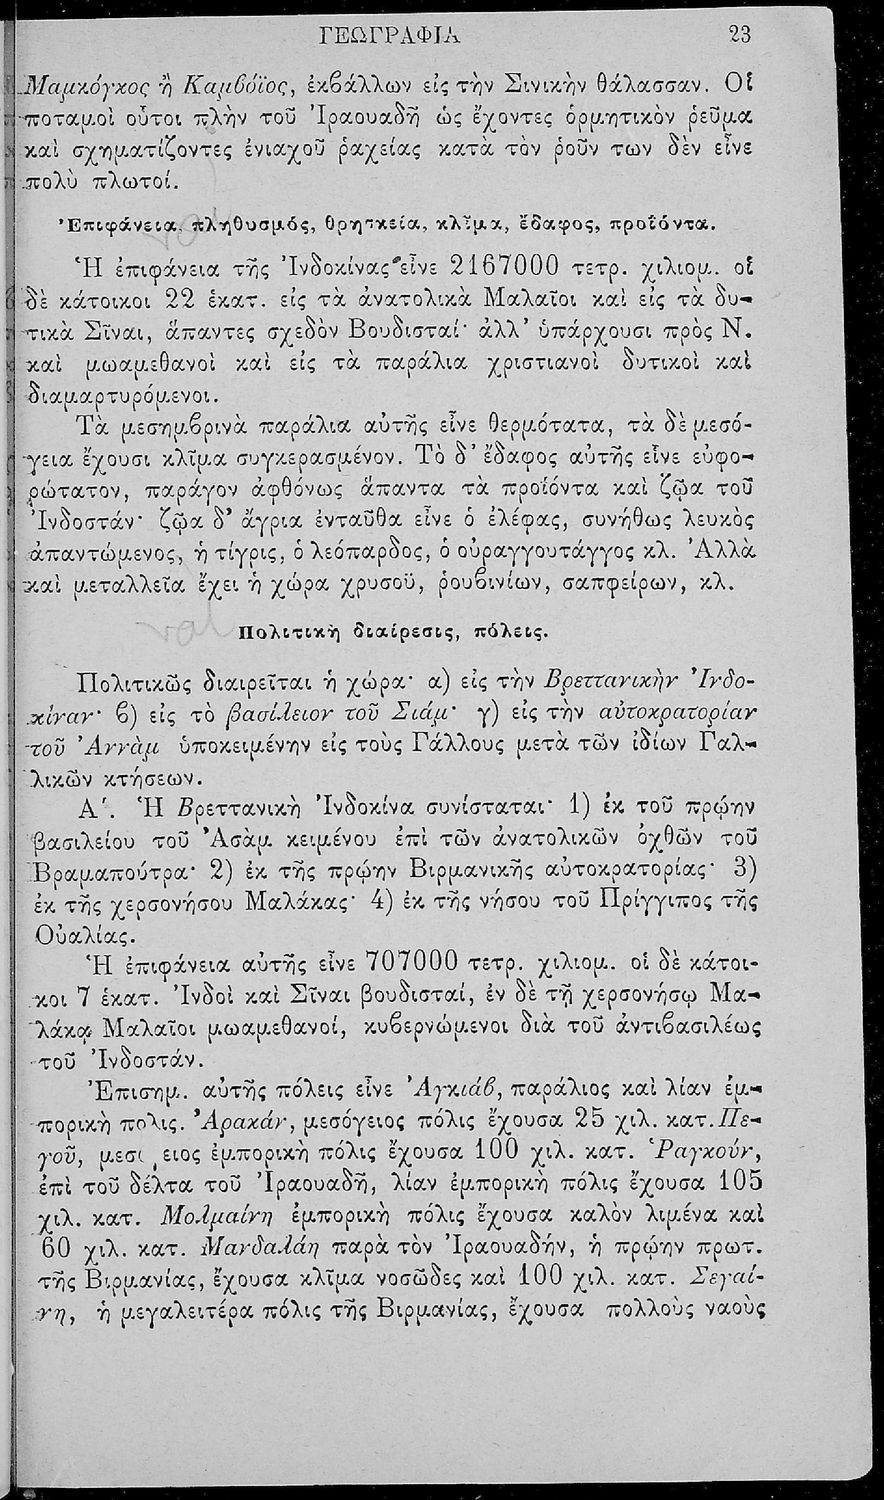 ΓΕΩΓΡΑΦΙΑ 23
Μαμκόγκος ἢ Καμβόϊος, ἐκβάλλων εἰς τὴν Σινικὴν θάλασσαν. Οἱ
ποταμοὶ οὗτοι πλὴν τοῦ Ἰραουαδῆ ὡς ἔχοντες ὁρμητικὸν ῥεῦμα
καὶ σχηματίζοντες ἐνιαχοῦ ῥαχείας κατὰ τὸν ῥοῦν των δὲν εἶνε
πολὺ πλωτοί.
Ἐπιφάνεια, πληθυσμός, θρησκεία, κλῖμα, ἔδαφος, προϊόντα.
Ἡ ἐπιφάνεια τῆς Ἰνδοκίνας εἶνε 2167000 τετρ. χιλιομ. οἱ
δὲ κάτοικοι 22 ἑκατ. εἰς τὰ ἀνατολικὰ Μαλαῖοι καὶ εἰς τὰ δυ-
τικὰ Σῖναι, ἅπαντες σχεδὸν Βουδισταί· ἀλλ' ὑπάρχουσι πρὸς Ν.
καὶ μωαμεθανοὶ καὶ εἰς τὰ παράλια χριστιανοὶ δυτικοὶ καὶ
διαμαρτυρόμενοι.
Τὰ μεσημβρινὰ παράλια αὐτῆς εἶνε θερμότατα, τὰ δὲ μεσό-
γεια ἔχουσι κλῖμα συγκερασμένον. Τὸ δ' ἔδαφος αὐτῆς εἶνε εὐφο-
ρώτατον, παράγον ἀφθόνως ἅπαντα τὰ προϊόντα καὶ ζῷα τοῦ
Ἰνδοστάν· ζῷα δ' ἄγρια ἐνταῦθα εἶνε ὁ ἐλέφας, συνήθως λευκὸς
ἀπαντώμενος, ἡ τίγρις, ὁ λεόπαρδος, ὁ οὐραγγουτάγγος κλ. Ἀλλὰ
καὶ μεταλλεῖα ἔχει ἡ χώρα χρυσοῦ, ῥουβινίων, σαπφείρων, κλ.
Πολιτικὴ διαίρεσις, πόλεις.
Πολιτικῶς διαιρεῖται ἡ χώρα· α) εἰς τὴν Βρεττανικὴν Ἰνδο-
κίναν· β) εἰς τὸ βασίλειον τοῦ Σιάμ· γ) εἰς τὴν αὐτοκρατορίαν
τοῦ Ἀννὰμ ὑποκειμένην εἰς τοὺς Γάλλους μετὰ τῶν ἰδίων Γαλ-
λικῶν κτήσεων.
Α'. Ἡ Βρεττανικὴ Ἰνδοκίνα συνίσταται· 1) ἐκ τοῦ πρῴην
βασιλείου τοῦ Ἀσὰμ κειμένου ἐπὶ τῶν ἀνατολικῶν ὀχθῶν τοῦ
Βραμαπούτρα· 2) ἐκ τῆς πρῴην Βιρμανικῆς αὐτοκρατορίας· 3)
ἐκ τῆς χερσονήσου Μαλάκας· 4) ἐκ τῆς νήσου τοῦ Πρίγγιπος τῆς
Οὐαλίας.
Ἡ ἐπιφάνεια αὐτῆς εἶνε 707000 τετρ. χιλιομ. οἱ δὲ κάτοι-
κοι 7 ἑκατ. Ἰνδοὶ καὶ Σῖναι βουδισταί, ἐν δὲ τῇ χερσονήσῳ Μα-
λάκᾳ Μαλαῖοι μωαμεθανοί, κυβερνώμενοι διὰ τοῦ ἀντιβασιλέως
τοῦ Ἰνδοστάν.
Ἐπισημ. αὐτῆς πόλεις εἶνε Ἀγκιάβ, παράλιος καὶ λίαν ἐμ-
πορικὴ πόλις. Ἀρακάν, μεσόγειος πόλις ἔχουσα 25 χιλ. κατ. Πε-
γοῦ, ἐμπορικὴ πόλις ἔχουσα 100 χιλ. κατ. Ῥαγκούν,
ἐπὶ τοῦ δέλτα τοῦ Ἰραουαδῆ, λίαν ἐμπορικὴ πόλις ἔχουσα 105
χιλ. κατ. Μολμαίνη ἐμπορικὴ πόλις ἔχουσα καλὸν λιμένα καὶ
60 χιλ. κατ. Μανδαλάη παρὰ τὸν Ἰραουαδήν, ἡ πρῴην πρωτ.
τῆς Βιρμανίας, ἔχουσα κλῖμα νοσῶδες καὶ 100 χιλ. κατ. Σεγαί-
νη, ἡ μεγαλειτέρα πόλις τῆς Βιρμανίας, ἔχουσα πολλοὺς ναοὺς